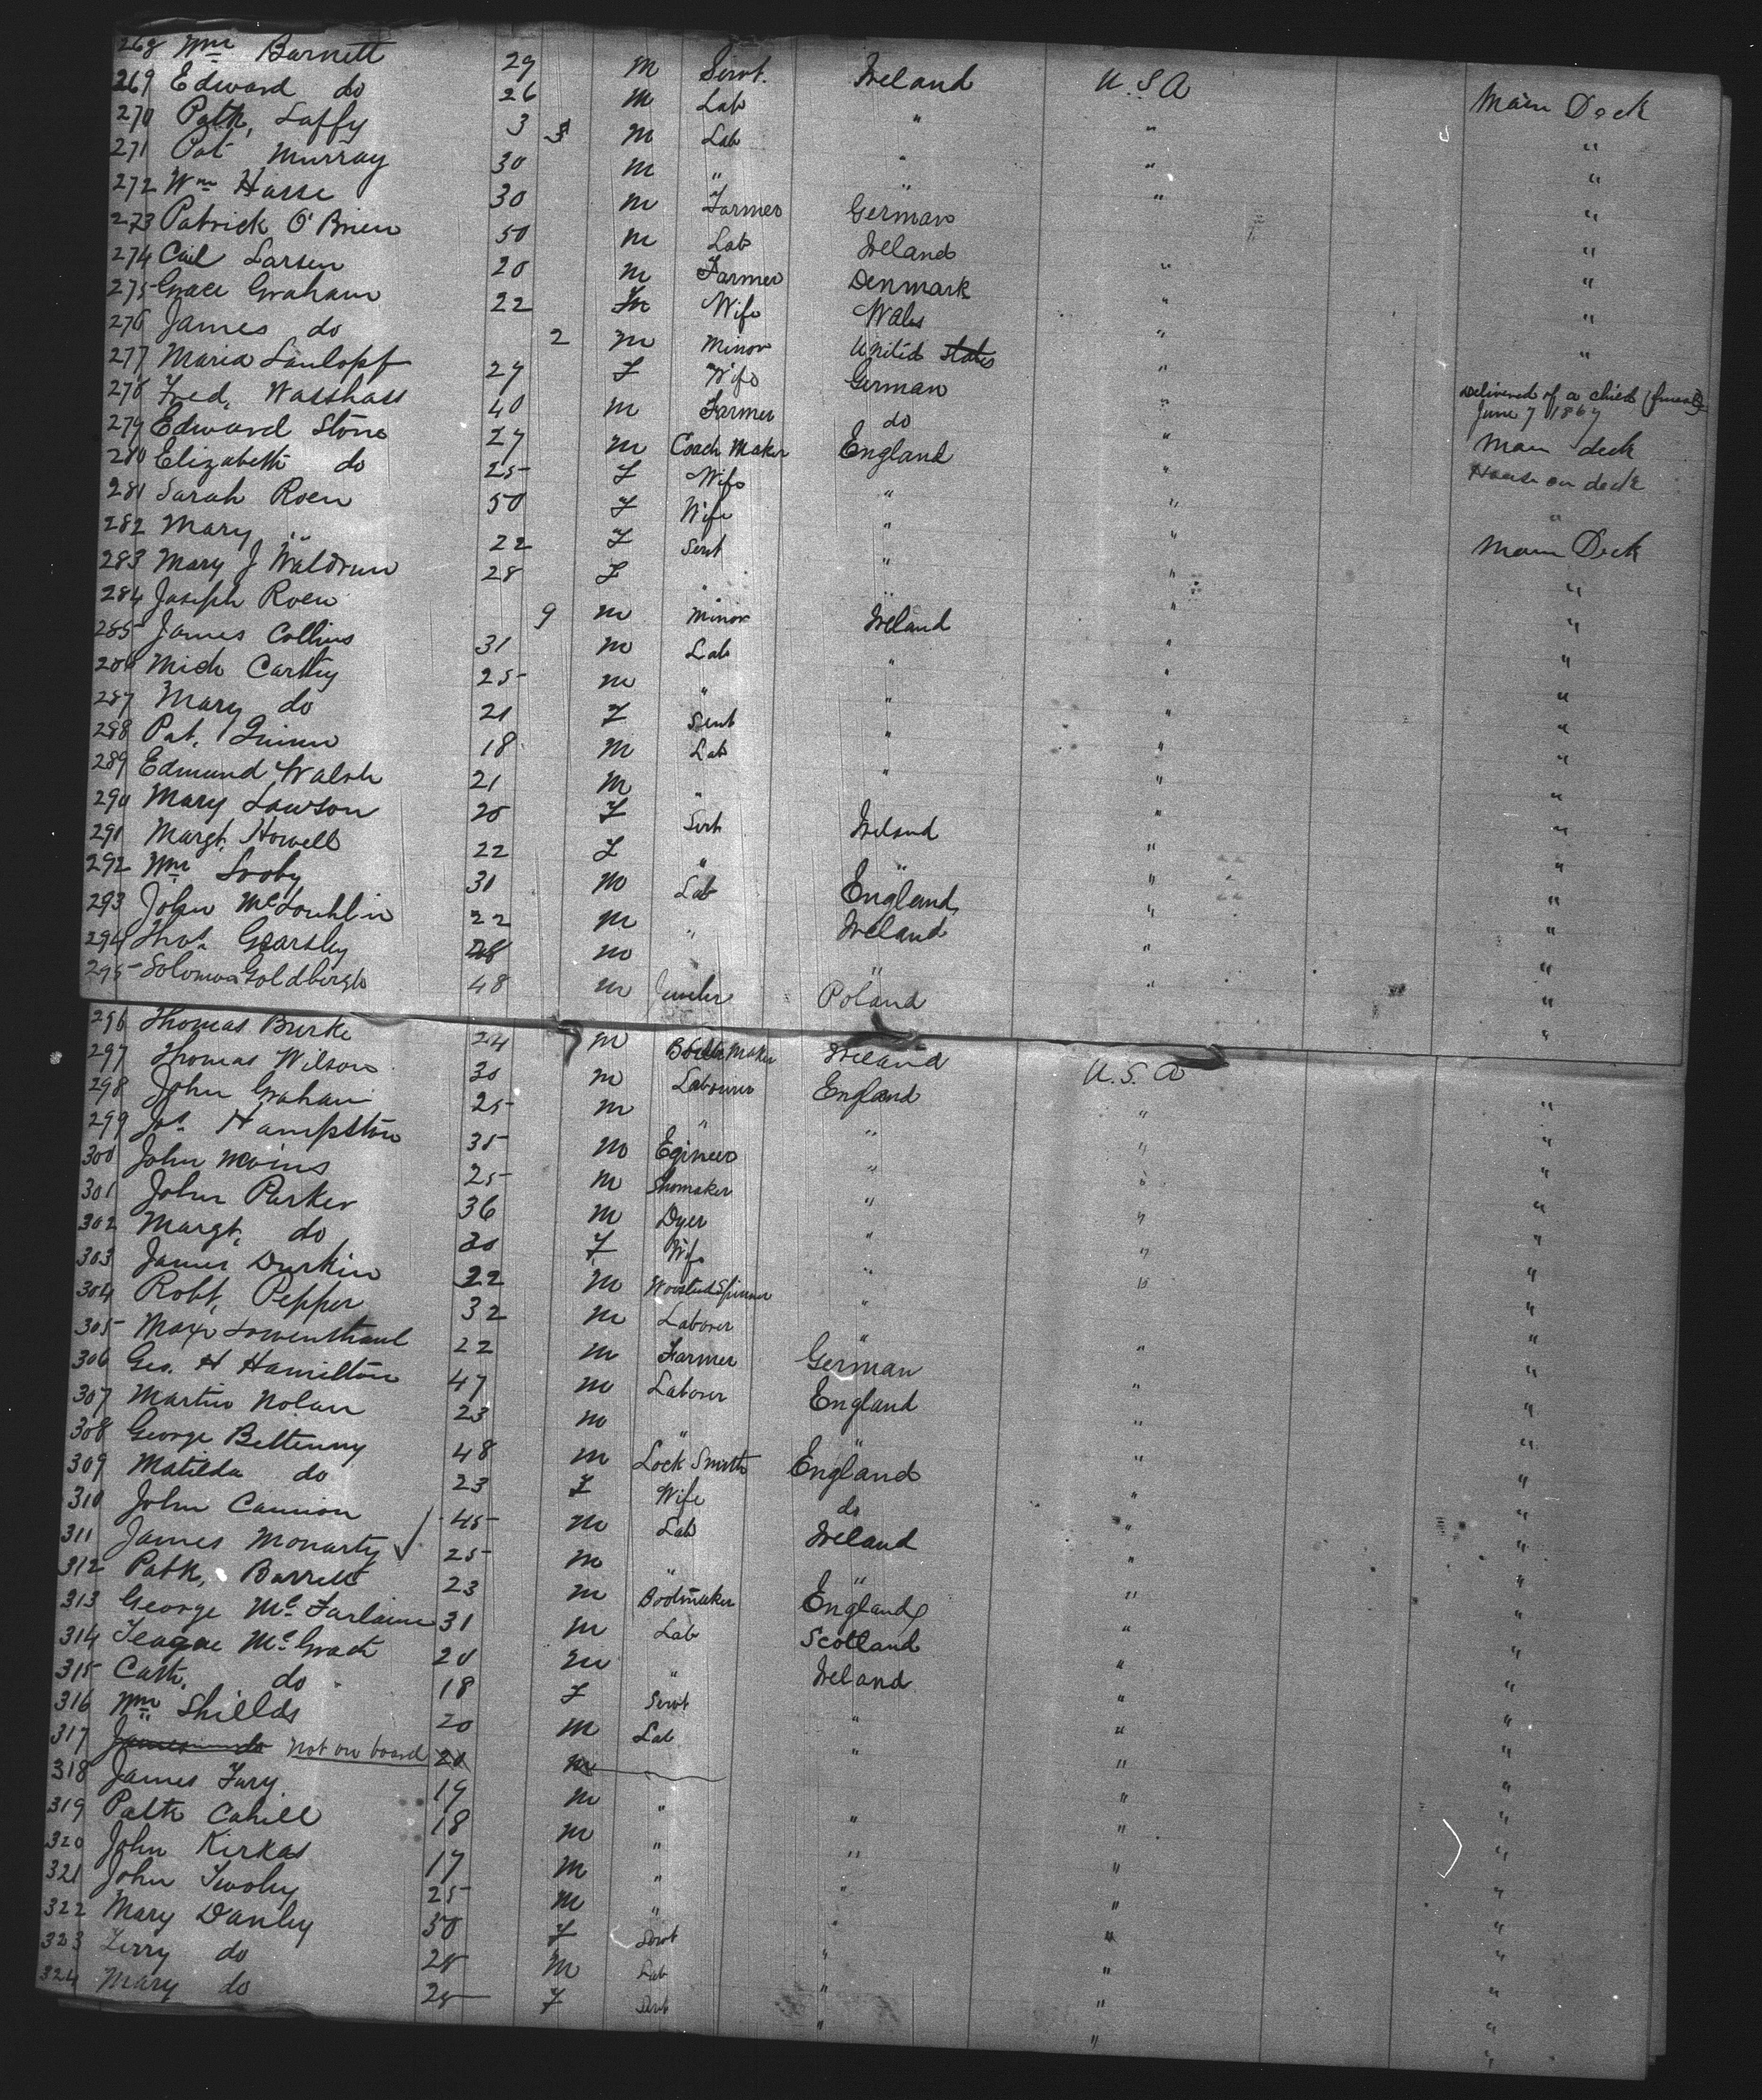 268 Wm Barnett 29 M Servt. Ireland U.S.A Main Deck
269 Edward do 26 M Lab " " "
270 Patk, Laffy 3 M Lab " " "
271 Pat Murray 30 M " " " "
272 Wm Hasse 30 M Farmer German "
273 Patrick O'Brien 50 M Lab Ireland " "
274 Carl Larsen 20 M Farmer Denmark " "
275 Grace Graham 22 Wife Wales " "
276 James do 2 M Minor United States "
277 Maria 27 F Wife German " Delivered of a child (female) June 7 1867
278 Fred, Wasshass 40 M Farmer do " Main deck
279 Edward Stone 27 M Coach Maker England " House on deck
280 Elizabeth do 25 F Wife " " "
281 Sarah Roen 50 F Wife " " Main Deck
282 Mary " 22 F Servt " " "
283 Mary J Waldrun 28 F " " " "
284 Joseph Roen 9 M Minor Ireland " "
285 James Collins 31 M Lab " " "
286 Mich Carthy 25 M " " " "
287 Mary do 21 F Servt " " "
288 Pat, Quinn 18 M Lab " " "
289 Edmund Walsh 21 M " " "
290 Mary Lawson 20 F Servt Ireland " "
291 Margt, Howell 22 F " " " "
292 Wm Looby 30 M Lab England " "
293 John McLouhlin 22 M " Ireland " "
294 Thos Gearsley 28 M " " "
295 Solomon Goldbergh 48 M Jeweler Poland "
296 Thomas Burke 24 M Boiler Maker Ireland U.S.A "
297 Thomas Wilson 30 M Labourer England " "
298 John Graham 25 M " " " "
299 Jas. Hampston 35 M Egineer " " "
300 John Moins 25 M Shomaker " " "
301 John Parker 36 M Dyer " " "
302 Margt, do 30 F Wife " " "
303 James Durkin 22 M Worsted Spinner " "
304 Robt, Pepper 32 M Laborer " " "
305 Max Lowenthaul 22 M Farmer German " "
306 Geo. H Hamilton 47 M Laborer England " "
307 Martin Nolan 23 M " " " "
308 George Beltenny 48 M Lock Smith England " "
309 Matilda do 23 F Wife do " "
310 John Cannon 45 M Lab Ireland " "
311 James Monarty 25 M " " " "
312 Patk, Barrett 23 M Bootmaker England " "
313 George McFarlaine 31 M Lab Scotland " "
314 Teague McGrath 20 M " Ireland " "
315 Cath, do 18 F Servt " " "
316 Wm Shields 20 M Lab " " "
317 James do Not on board 20 M "
318 James Fury 19 M " " " "
319 Patk Cahill 18 M " " " "
320 John Kirkas 17 M " " " "
321 John Twohy 25 M " " " "
322 Mary Danley 50 F Servt " " "
323 Terry do 28 M Lab " " "
324 Mary do 25 F Servt " " "